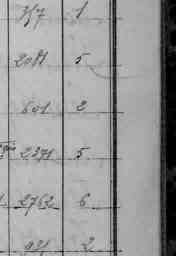 317 1
2081 5
601 2
2371 5
2762 6
921 2